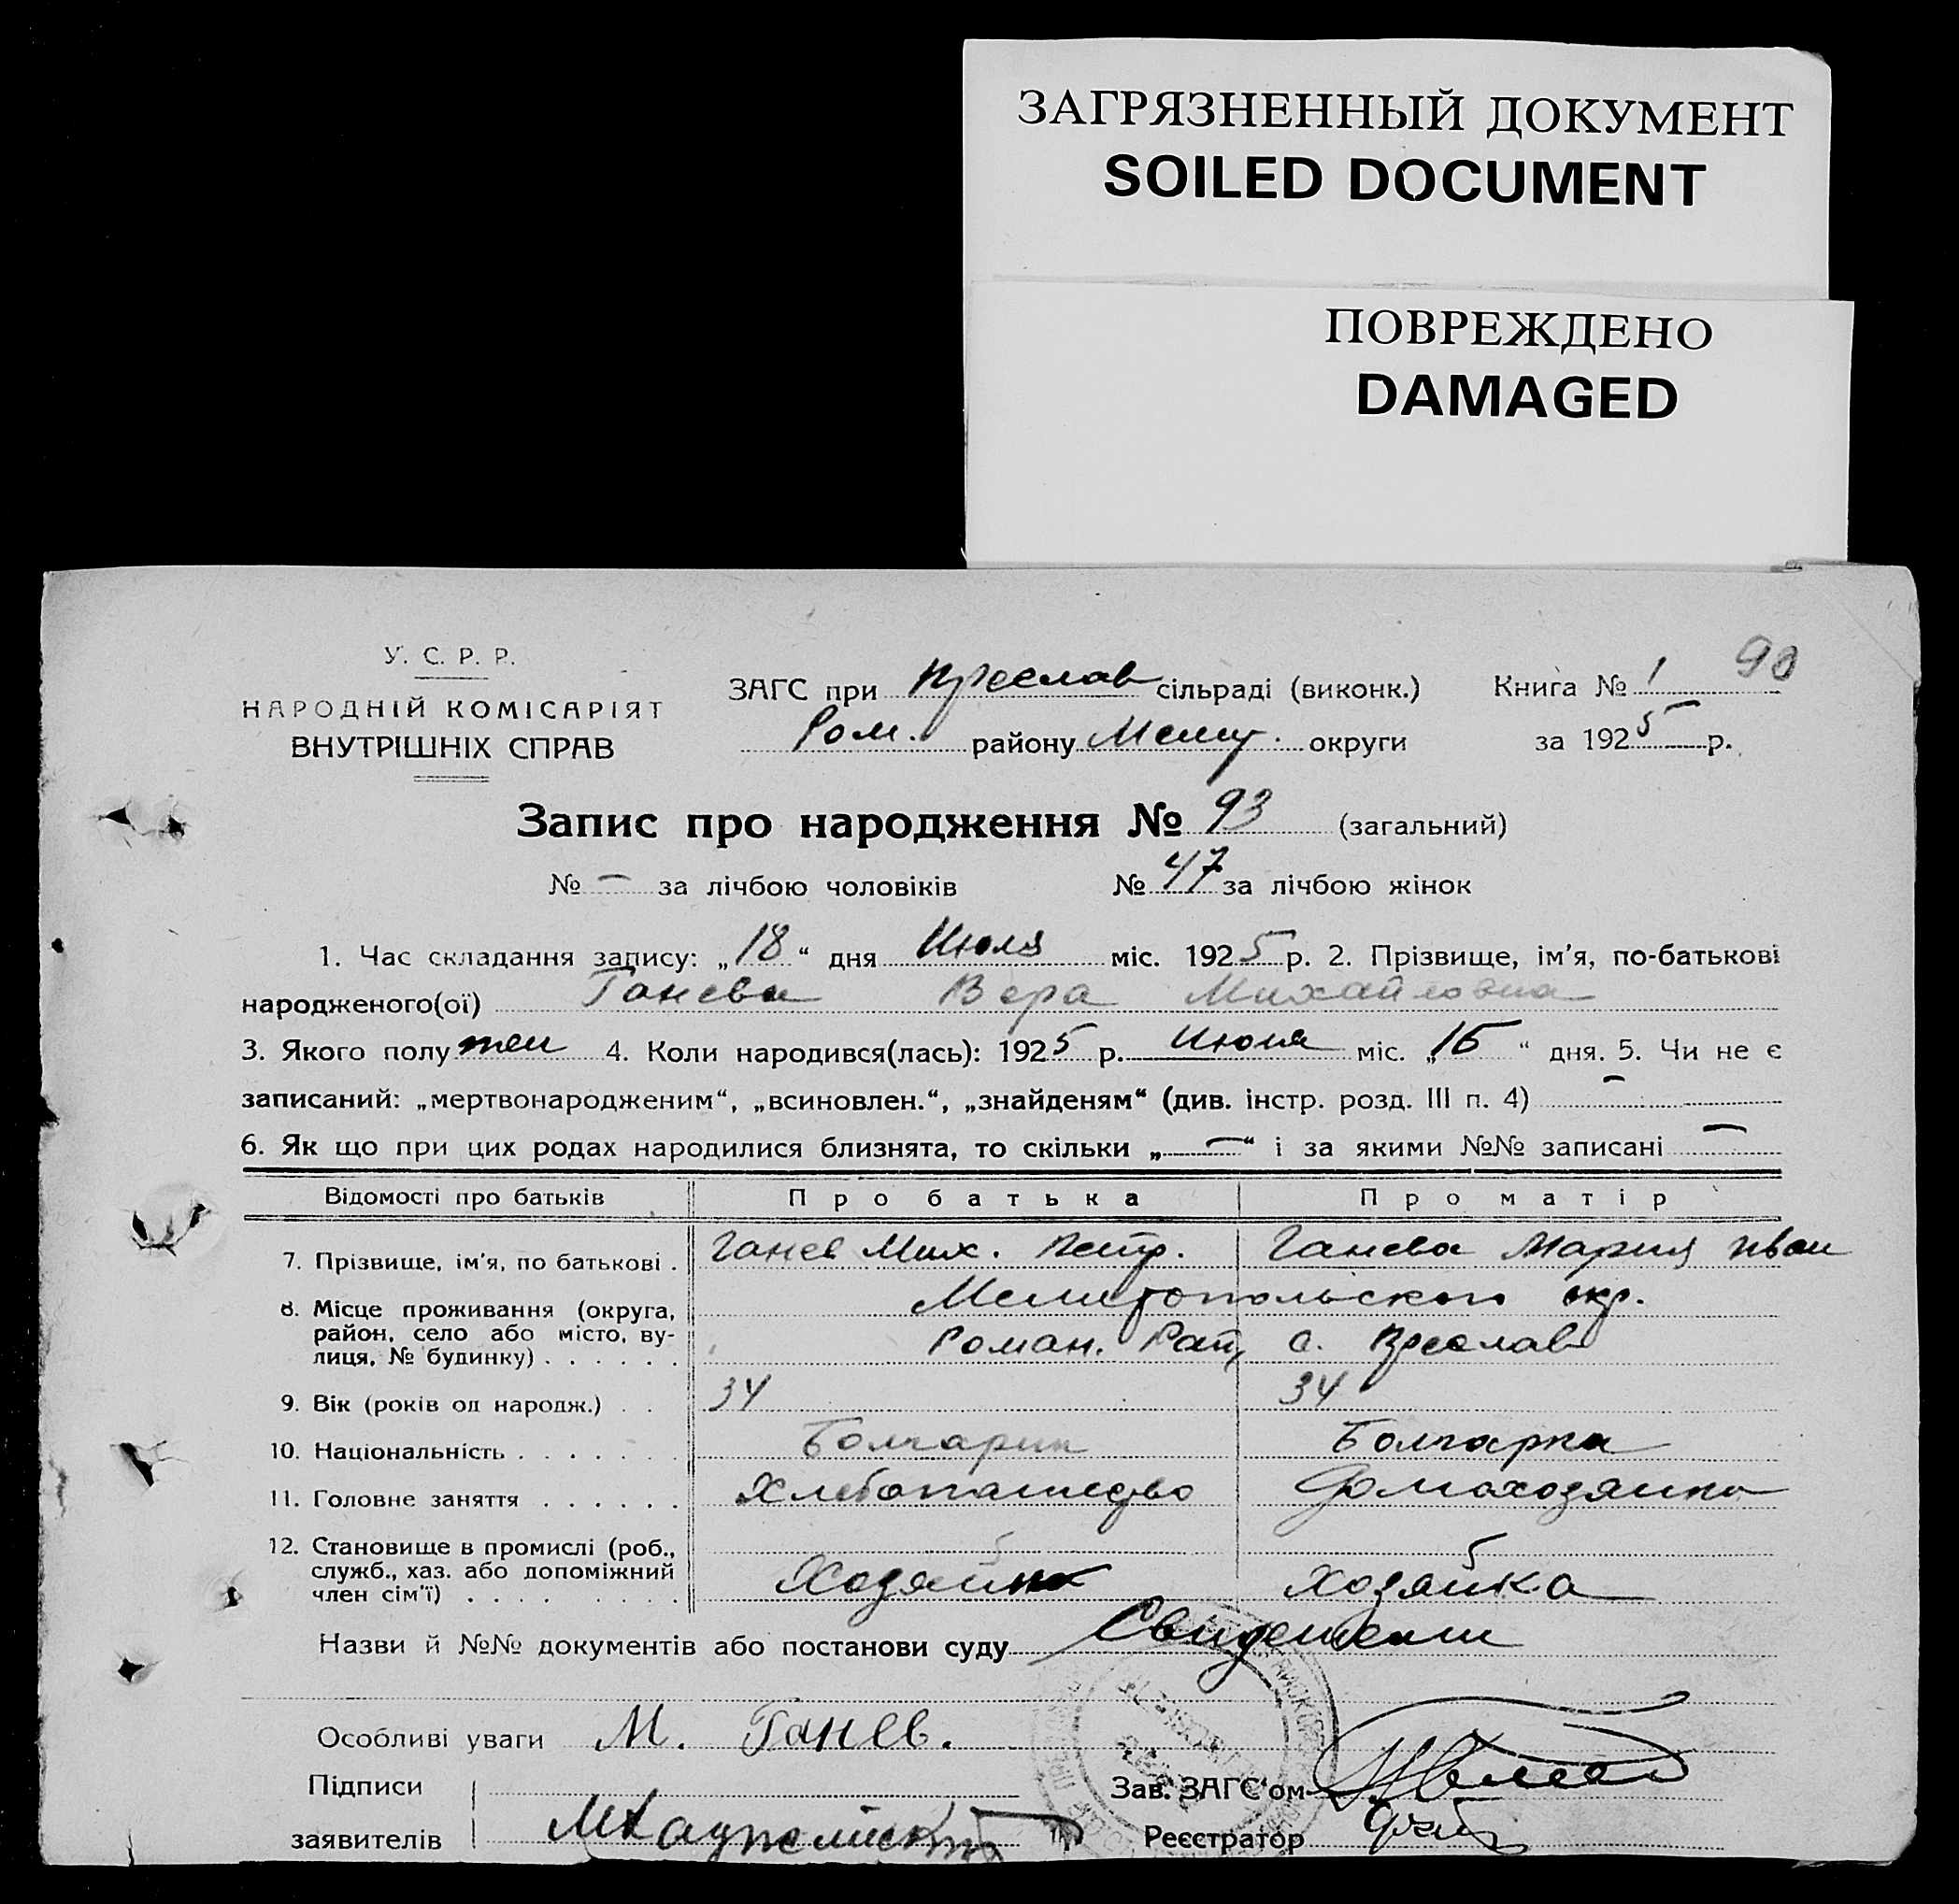 ЗАГРЯЗНЕННЫЙ ДОКУМЕНТ
SOILED DOCUMENT
ПОВРЕЖДЕНО
DAMAGED
90
У. С. Р. Р.
НАРОДНІЙ КОМІСАРІЯТ
ВНУТРІШНІХ СПРАВ
ЗАГС при Преслав сільраді (виконк.) Книга № 1
Ром. району Мелит. округи за 1925 р.
Запис про народження № 93 (загальний)
№ – за лічбою чоловіків № 47 за лічбою жінок
1. Час складання запису: „18“ дня Июля міс. 1925 р. 2. Прізвище, ім'я, по-батькові
народженого(ої) Ганева Вера Михайловна
3. Якого полу жен 4. Коли народився(лась): 1925 р. Июля міс. „15“ дня. 5. Чи не є
записаний: „мертвонародженим“, „всиновлен.“, „знайденям“ (див. інстр. розд. III п. 4) –
6. Як що при цих родах народилися близнята, то скільки „–“ і за якими №№ записані –
Відомості про батьків Про батька Про матір
7. Прізвище, ім'я, по батькові . Ганев Мих. Петр. Ганева Мария Иван
8. Місце проживання (округа, Мелитопольского окр.
район, село або місто, ву-
лиця, № будинку) . . . . . . Роман. Рай, с. Преслав
9. Вік (років од народж.) . . 34 34
10. Національність . . . . . . . Болгарин Болгарка
11. Головне заняття . . . . . . Хлебопашество Домохозяйка
12. Становище в промислі (роб.,
служб., хаз. або допоміжний
член сім'ї) . . . . . . . . Хозяин Хозяйка
Назви й №№ документів або постанови суду Свидетели
Особливі уваги М. Ганев.
Підписи
Зав. ЗАГС'ом
заявителів
Реєстратор